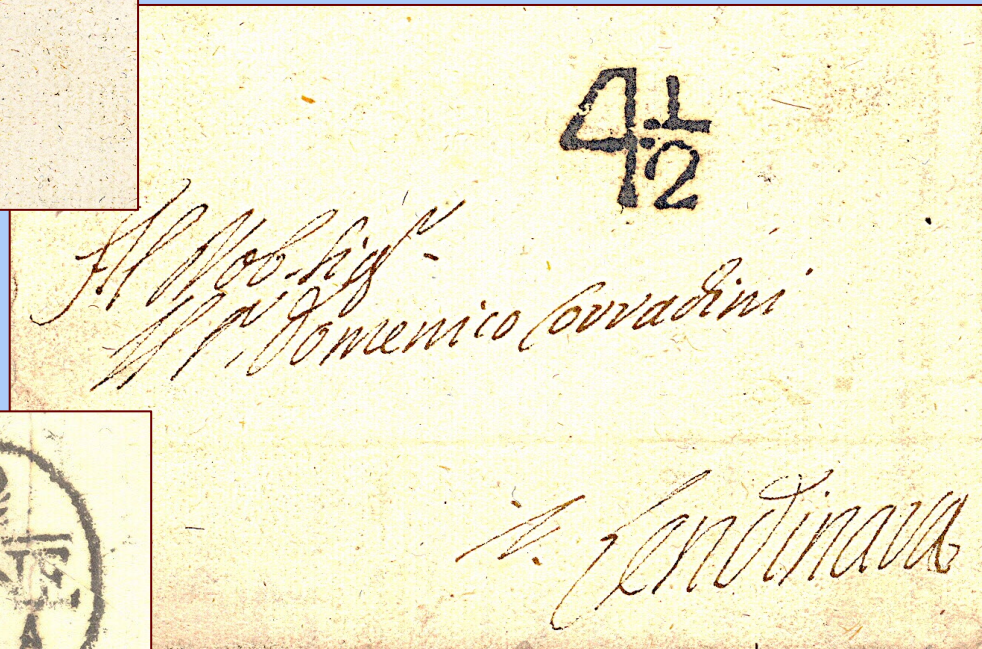 4 1/2
Al Nob. Sigr.
Il Sr. Domenico Corradini
Lendinara